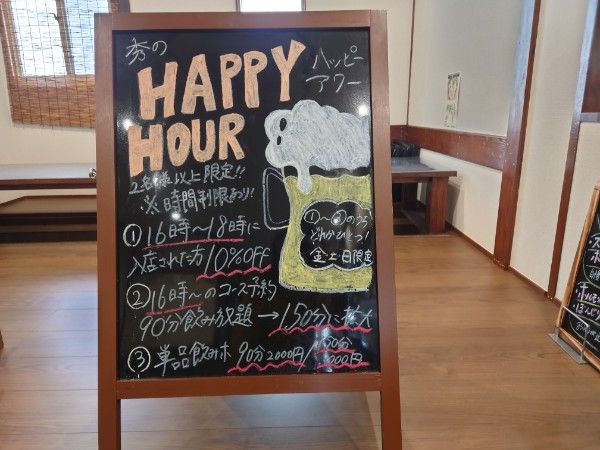 秀の
HAPPY
HOUR
ハッピー
アワー
2名様以上限定!!
※時間制限あり!
① 16時〜18時に
入店された方 10%OFF
①〜③のうち
どれかひとつ!
金土日限定
② 16時〜のコース予約
90分飲み放題 → 150分に拡大
③ 単品飲みホ 90分2000円/150分
000円